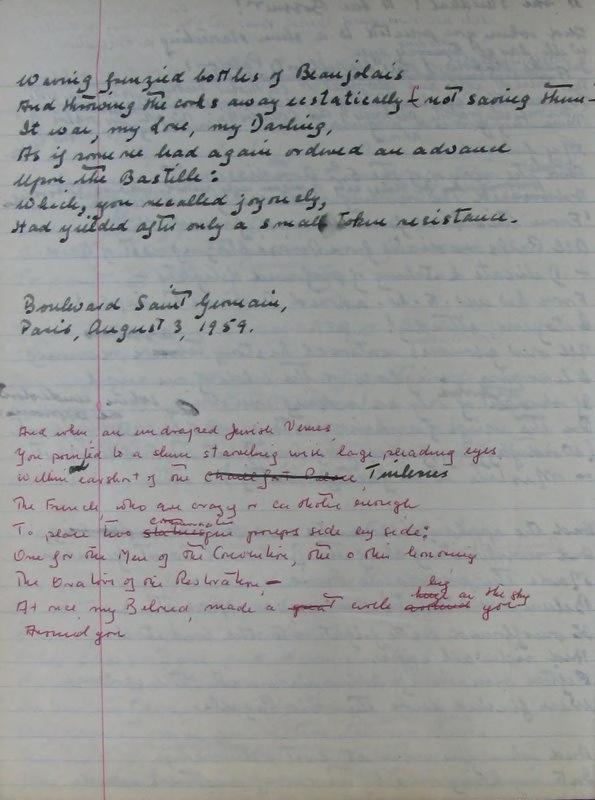 Waving frenzied bottles of Beaujolais
And throwing the corks away ecstatically (- not saving them -
It was, my Love, my Darling,
As if someone had again ordered an advance
Upon the Bastille:
Which, you recalled joyously,
Had yielded after only a small token resistance.
Boulevard Saint Germain,
Paris, August 3, 1959.
And when, an undraped Jewish Venus,
You pointed to a statue standing with large pleading eyes
Within earshot of the Tuileries
The French, who are crazy or catholic enough
To place two commemorative groups side by side:
One for the Men of the Convention, the other honouring
The Orators of the Restoration -
At once, my Beloved, made a circle big as the sky
Around you